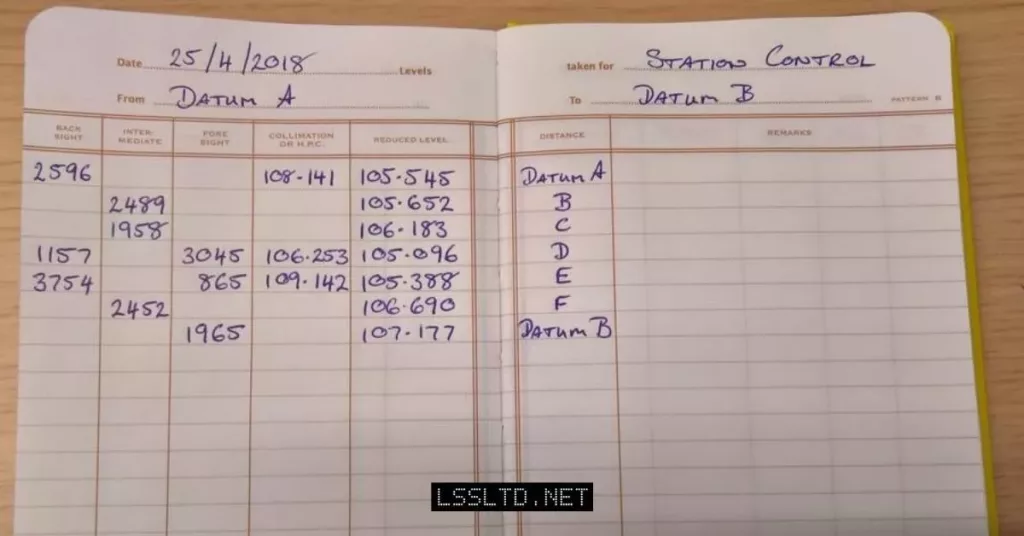 Date 25/4/2018 Levels taken for STATION CONTROL
From DATUM A To DATUM B PATTERN B
BACK SIGHT INTER- MEDIATE FORE SIGHT COLLIMATION OR H.P.C. REDUCED LEVEL DISTANCE REMARKS
2596 108.141 105.545 DATUM A
2489 105.652 B
1958 106.183 C
1157 3045 106.253 105.096 D
3754 865 109.142 105.388 E
2452 106.690 F
1965 107.177 DATUM B
LSSLTD.NET